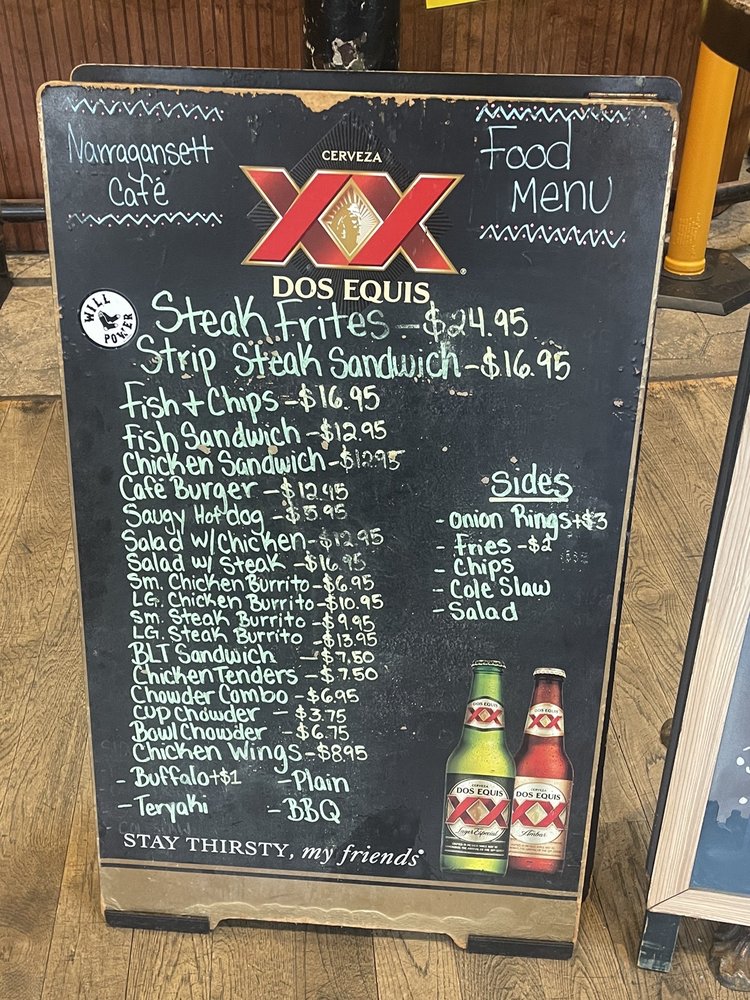 Narragansett
Café
Food
Menu
CERVEZA
XX
DOS EQUIS
WILL
POWER
Steak Frites - $24.95
Strip Steak Sandwich - $16.95
Fish + Chips - $16.95
Fish Sandwich - $12.95
Chicken Sandwich - $12.95
Café Burger - $12.95
Saugy Hotdog - $5.95
Salad w/ Chicken - $12.95
Salad w/ Steak - $16.95
Sm. Chicken Burrito - $6.95
LG. Chicken Burrito - $10.95
Sm Steak Burrito - $9.95
LG. Steak Burrito - $13.95
BLT Sandwich - $7.50
Chicken Tenders - $7.50
Chowder Combo - $6.95
Cup Chowder - $3.75
Bowl Chowder - $6.75
Chicken Wings - $8.95
- Buffalo +$1
- Plain
- Teryaki
- BBQ
Sides
- Onion Rings +$3
- Fries - $2
- Chips
- Cole Slaw
- Salad
DOS EQUIS
XX
CERVEZA
DOS EQUIS
XX
Lager Especial
DOS EQUIS
XX
CERVEZA
DOS EQUIS
XX
Ambar
STAY THIRSTY, my friends®